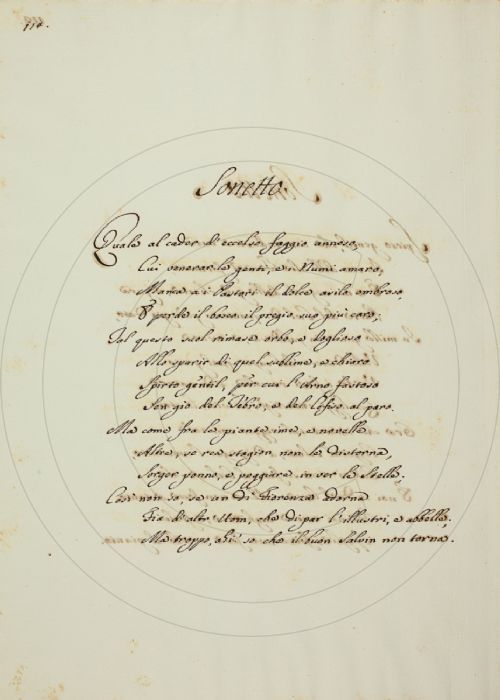 114.
Sonetto.
Quale al cader di eccelso faggio annoso,
Cui venerar le genti, e i Numi amaro,
Manca a i Pastori il dolce asilo ombroso,
E perde il bosco il pregio suo più caro;
Tal questo suol rimase orbo, e doglioso
Allo sparir di quel sublime, e chiaro
Spirto gentil, per cui l'Arno fastoso
Sen gio del Tebro, e del Cefiso al paro.
Ma come fra le piante ime, e novelle
Altre, se rea stagion non le distorna,
Sorger ponno, e poggiare in ver le Stelle;
Così non so, se un dì Fiorenza adorna
Fia d'altr'Uom, che di par l'illustri, e abbelle;
Ma troppo, ahi so che il buon Salvin non torna.